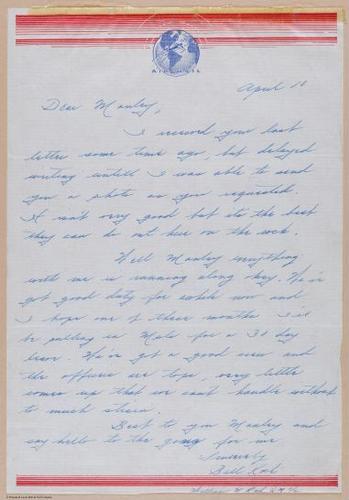 AIR MAIL
April 10
Dear Manley,
I received your last
letter some time ago, but delayed
writing untill I was able to send
you a photo as you requested.
It isn't very good but its the best
they can do out here on the rock.
Well Manley everything
with me is running along okey. We've
got good duty for awhile now and
I hope one of these months I'll
be putting in Mols for a 30 day
leave. We've got a good crew and
the officers are tops, very little
comes up that we can't handle without
to much strain.
Best to you Manley and
say hello to the gang for me
Sincerely
Bill